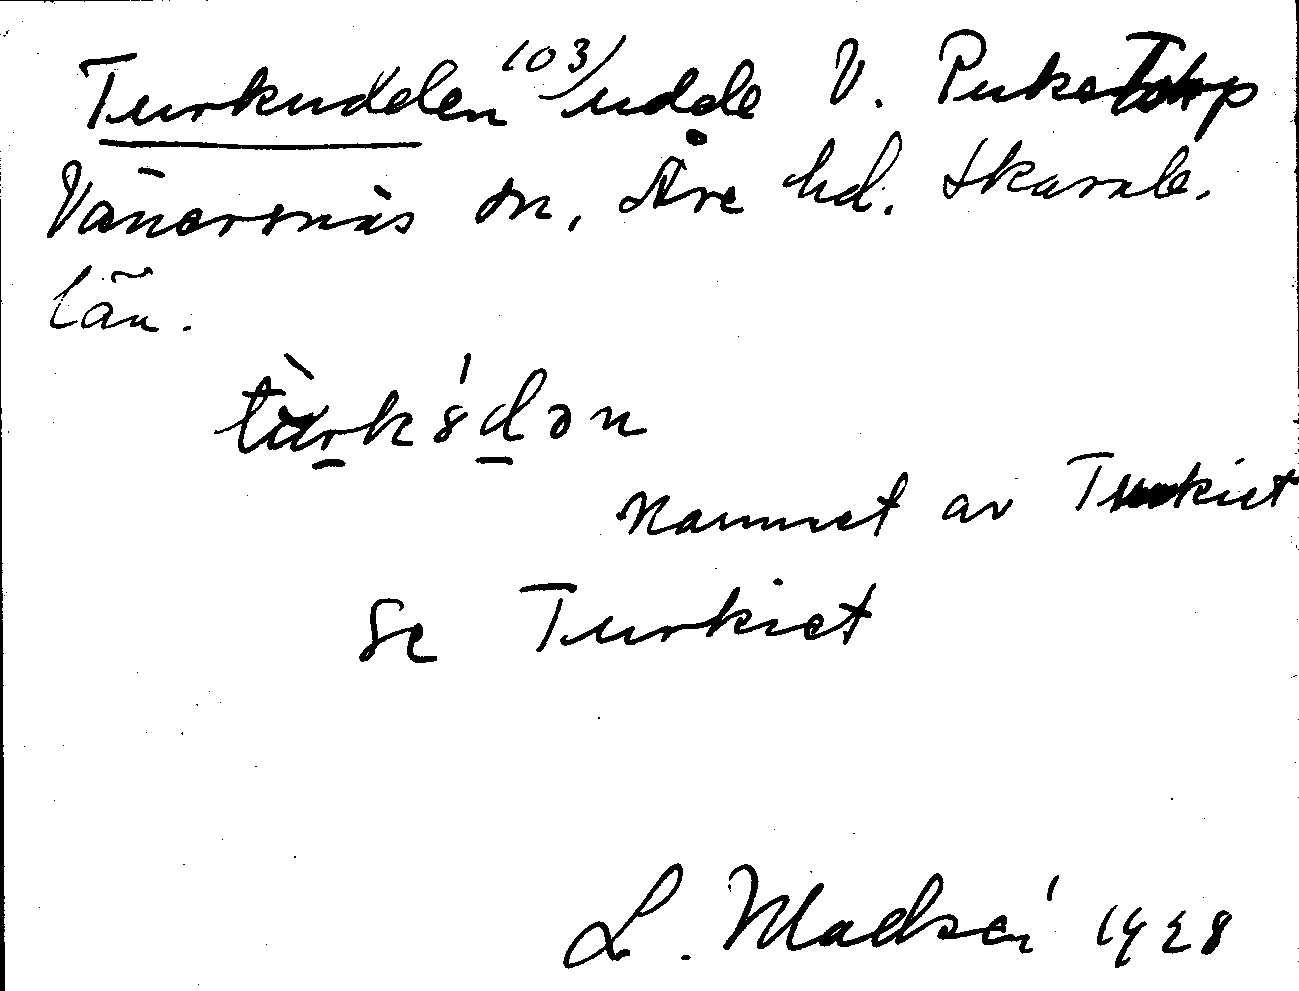 Turkudden 103/ udde V. Puketorp
Vänersnäs sn, Åse hd. Skarab.
län.
Namnet av Turkiet
Se Turkiet
L. Madsén 1928